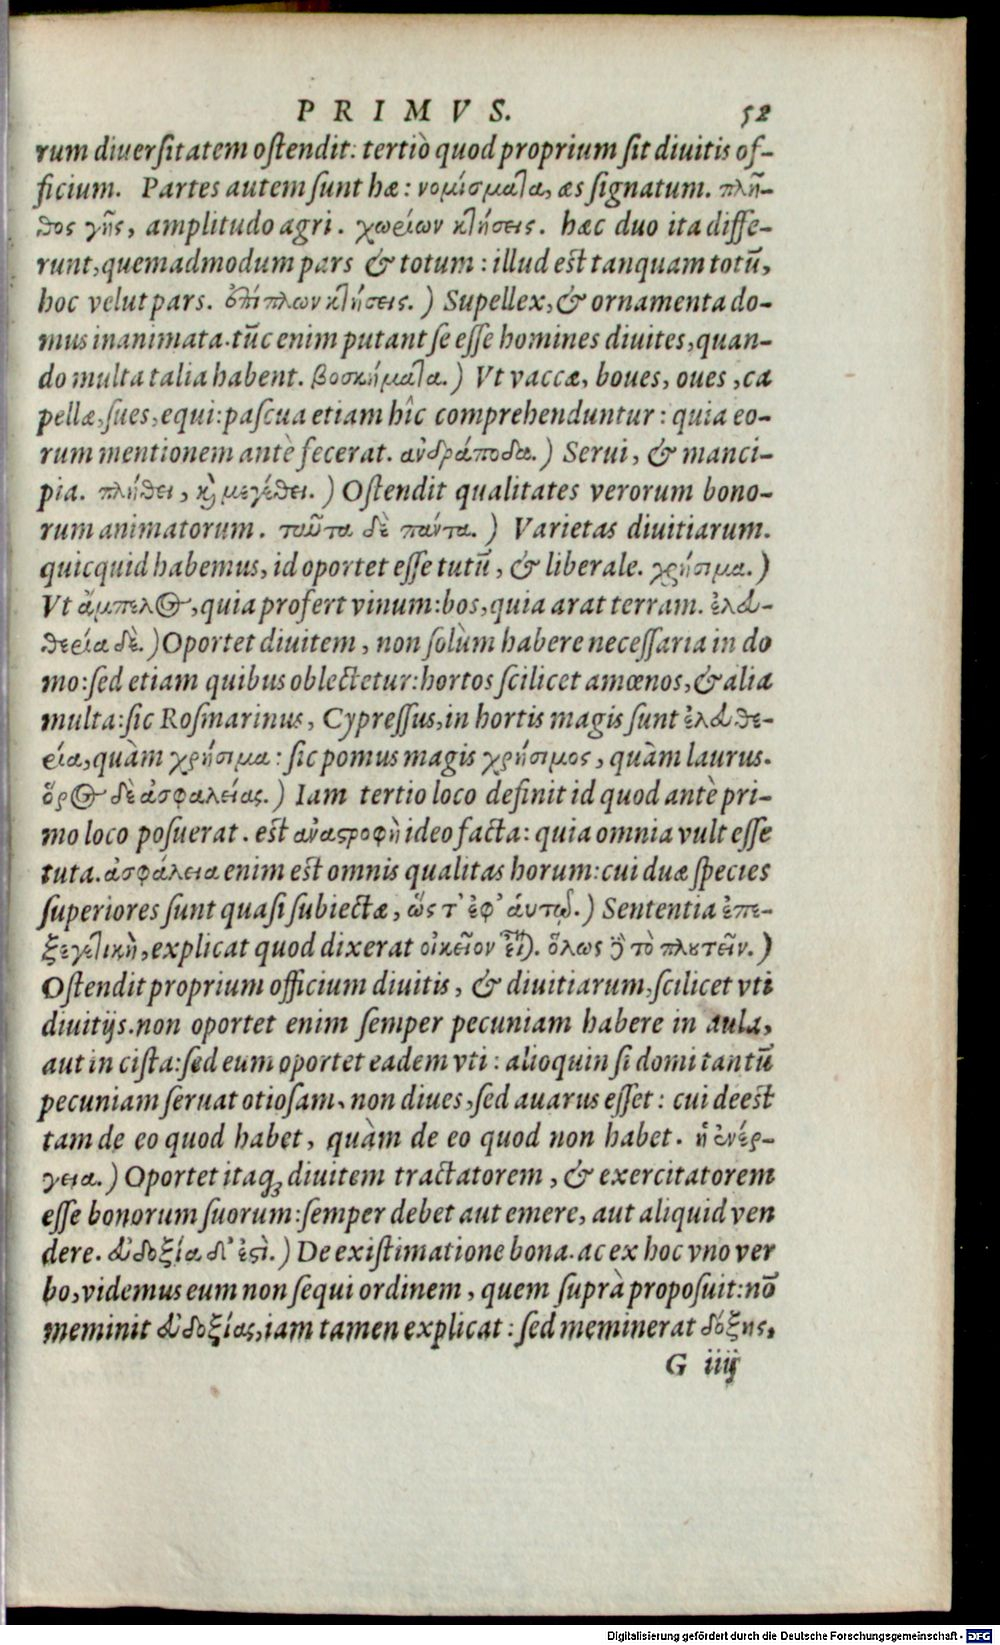 PRIMVS. 52
rum diuersitatem ostendit: tertiò quod proprium sit diuitis of-
ficium. Partes autem sunt hæ: νομίσματα, æs signatum. πλῆ-
θος γῆς, amplitudo agri. χωρίων κτήσεις. hæc duo ita diffe-
runt, quemadmodum pars & totum: illud est tanquam totũ,
hoc velut pars. ἐπίπλων κτήσεις.) Supellex, & ornamenta do-
mus inanimata. tũc enim putant se esse homines diuites, quan-
do multa talia habent. βοσκήματα.) Vt vaccæ, boues, oues, ca
pellæ, sues, equi: pascua etiam hîc comprehenduntur: quia eo-
rum mentionem antè fecerat. ανδράποδα.) Serui, & manci-
pia. πλήθει, κ̀ μεγέθει.) Ostendit qualitates verorum bono-
rum animatorum. ταῦτα δὲ πάντα.) Varietas diuitiarum.
quicquid habemus, id oportet esse tutũ, & liberale. χρήσιμα.)
Vt ἄμπελος, quia profert vinum: bos, quia arat terram. ἐλευ-
θερία δὲ.) Oportet diuitem, non solùm habere necessaria in do
mo: sed etiam quibus oblectetur: hortos scilicet amœnos, & alia
multa: sic Rosmarinus, Cypressus, in hortis magis sunt ἐλευθε-
ρία, quàm χρήσιμα: sic pomus magis χρήσιμος, quàm laurus.
ὅρος δὲ ἀσφαλείας.) Iam tertio loco definit id quod antè pri-
mo loco posuerat. est αναστροφὴ ideo facta: quia omnia vult esse
tuta. ἀσφάλεια enim est omnis qualitas horum: cui duæ species
superiores sunt quasi subiectæ, ὥς τ' ἐφ' ἁυτῷ.) Sententia ἐπε-
ξεγετικὴ, explicat quod dixerat οἰκεῖον εἶναι). ὅλως ἢ τὸ πλουτεῖν.)
Ostendit proprium officium diuitis, & diuitiarum, scilicet vti
diuitijs. non oportet enim semper pecuniam habere in aula,
aut in cista: sed eum oportet eadem vti: alioquin si domi tantũ
pecuniam seruat otiosam, non diues, sed auarus esset: cui deest
tam de eo quod habet, quàm de eo quod non habet. ἡ ἐνέρ-
γεια.) Oportet itaq; diuitem tractatorem, & exercitatorem
esse bonorum suorum: semper debet aut emere, aut aliquid ven
dere. ευδοξία δ' ἐστὶ.) De existimatione bona. ac ex hoc vno ver
bo, videmus eum non sequi ordinem, quem suprà proposuit: nõ
meminit ευδοξίας, iam tamen explicat: sed meminerat δόξης,
G iiij
Digitalisierung gefördert durch die Deutsche Forschungsgemeinschaft - DFG